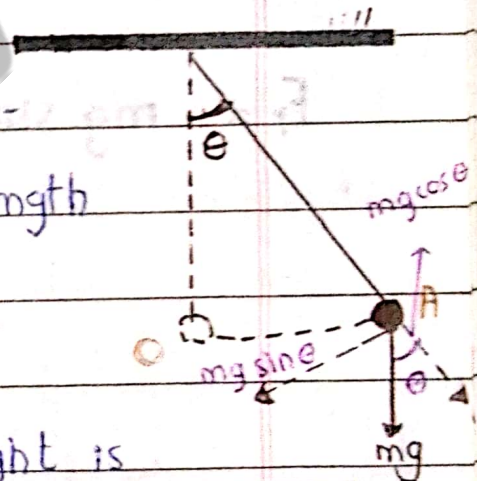 θ
ngth
mg cosθ
A
O
mg sinθ
θ
mg
ht is